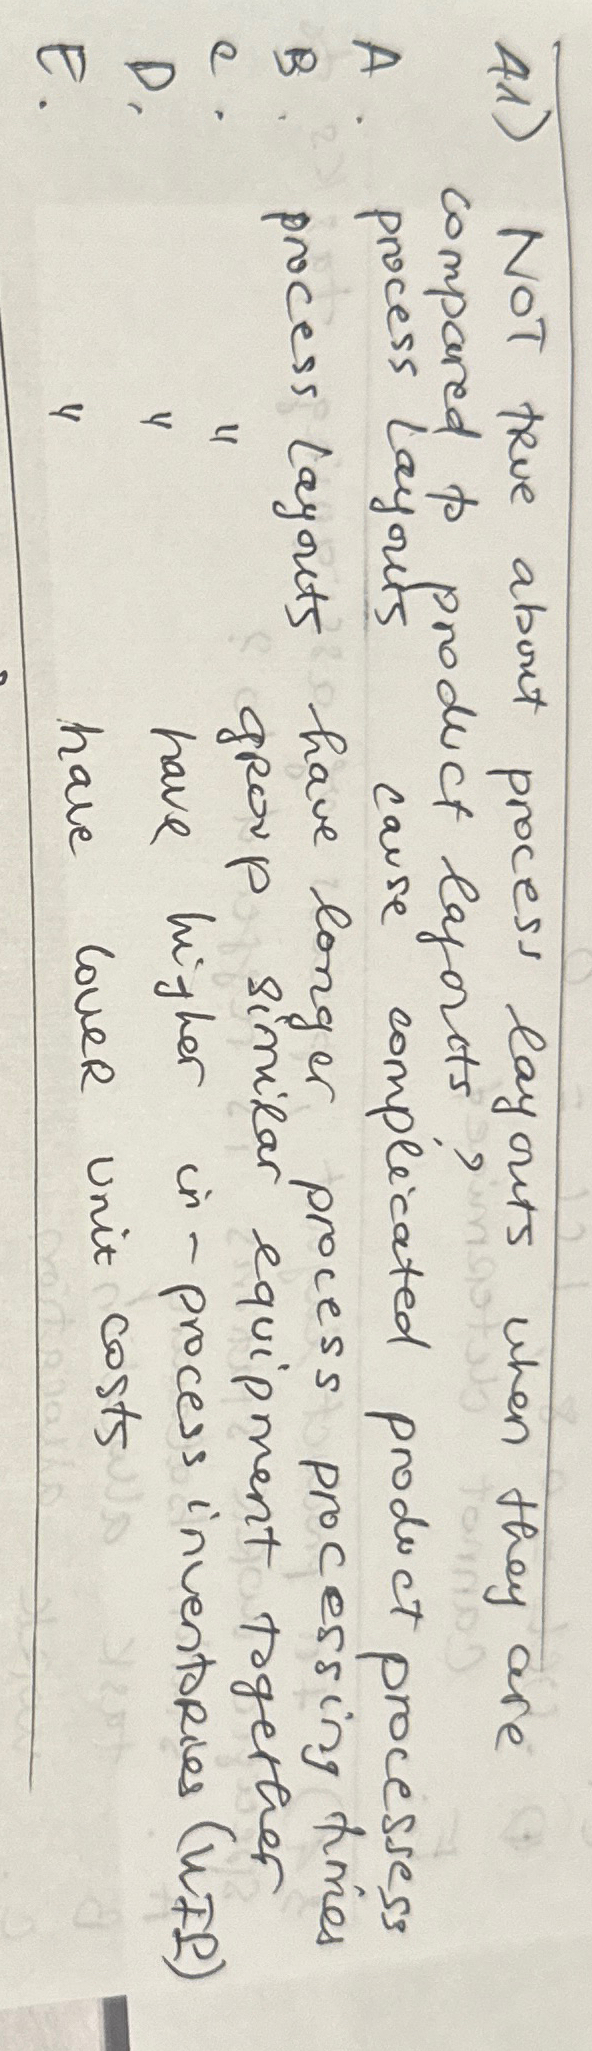 41) NOT true about process layouts when they are
compared to product layouts;
A. process layouts cause complicated product processess
B. process layouts have longer process processing times
C. " group similar equipment together
D. " have higher in-process inventories (WIP)
E. " have lower unit costs